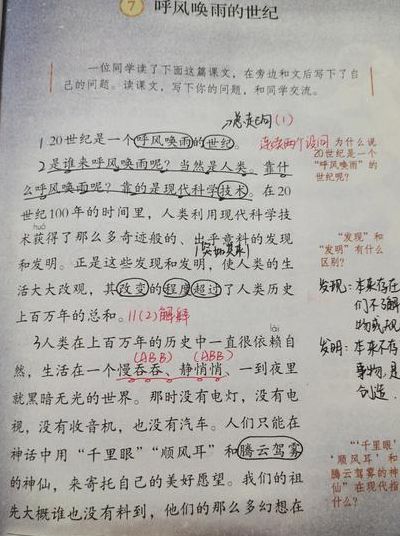 7 呼风唤雨的世纪
一位同学读了下面这篇课文，在旁边和文后写下了自
己的问题。读课文，写下你的问题，和同学交流。
(1)
1 20世纪是一个呼风唤雨的世纪。
连续两个设问
为什么说
20世纪是一个
“呼风唤雨”的
世纪呢？
2 是谁来呼风唤雨呢？当然是人类。靠什
么呼风唤雨呢？靠的是现代科学技术。在20
世纪100年的时间里，人类利用现代科学技
huò
术获得了那么多奇迹般的、出乎意料的发现
和发明。正是这些发现和发明，使人类的生
活大大改观，其改变的程度超过了人类历史
上百万年的总和。
(2)解释
“发现”和
“发明”有什么
区别？
发现：本来存在
们不了解
发明：本来不存
事物，是
创造
lài
3 人类在上百万年的历史中一直很依赖自
(ABB) (ABB)
然，生活在一个慢吞吞、静悄悄、一到夜里
就黑暗无光的世界。那时没有电灯，没有电
视，没有收音机，也没有汽车。人们只能在
神话中用“千里眼”“顺风耳”和腾云驾雾
的神仙，来寄托自己的美好愿望。我们的祖
先大概谁也没有料到，他们的那么多幻想在
“‘千里眼’
‘顺风耳’和
腾云驾雾的神
仙”在现代指
什么？